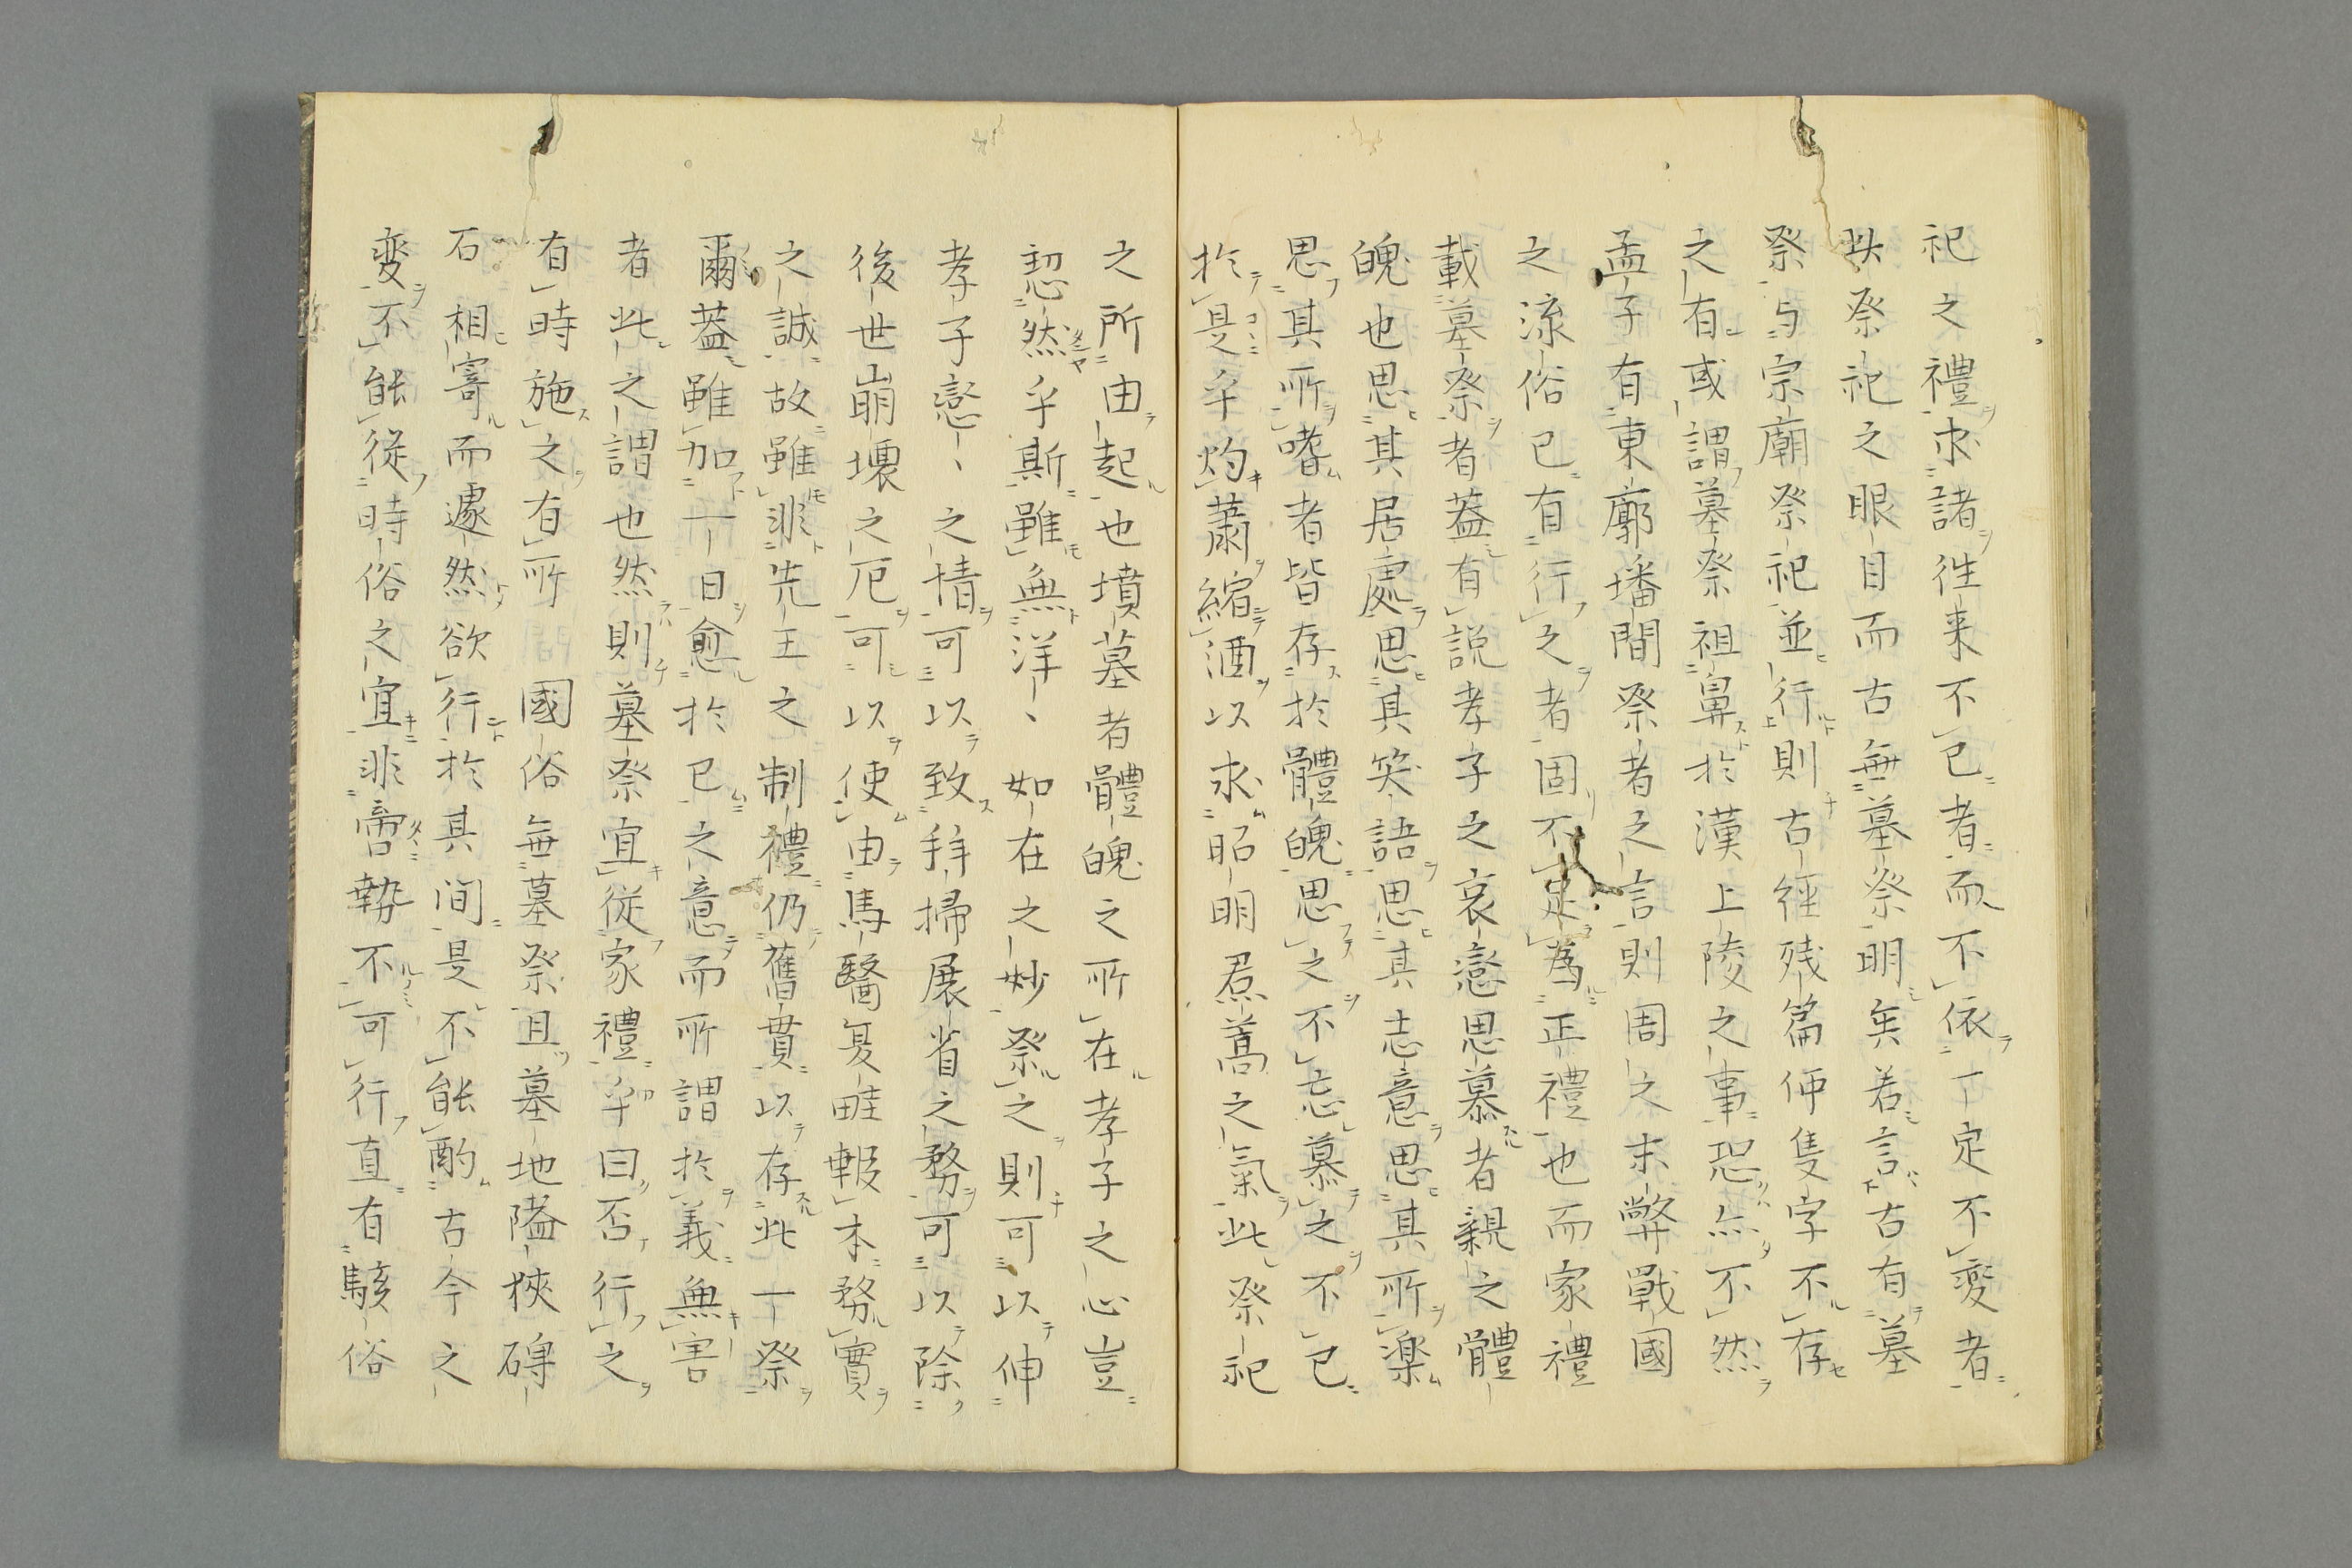 祀之禮求諸徃来不已者而不依一定不変者
此祭祀之眼目而古無墓祭明矣若言古有墓
祭与宗廟祭祀並行則古經残篇何隻字不存
之有或謂墓祭祖鼻於漢上陵之事恐亦不然
孟子有東廓墦間祭者之言則周之末弊戰國
之流俗已有行之者固不足為正禮也而家禮
載墓祭者蓋有説孝子之哀戀思慕者親之體
魄也思其居處思其笑語思其志意思其所樂
思其所嗜者皆存於體魄思之不忘慕之不已
於是乎灼蕭縮酒以求昭明焄蒿之氣此祭祀
之所由起也墳墓者體魄之所在孝子之心豈
恝然乎斯雖無洋〻如在之妙祭之則可以伸
孝子戀〻之情可以致拜掃展省之務可以除
後世崩壊之厄可以使由馬醫夏畦報本務實
之誠故雖非先王之制禮仍舊貫以存此一祭
爾蓋雖加一日愈於已之意而所謂於義無害
者此之謂也然則墓祭宜從家禮乎曰否行之
有時施之有所 國俗無墓祭且墓地隘狹磚
石相寄而遽然欲行於其间是不能酌古今之
変不能從時俗之宜非啻勢不可行直有駭俗